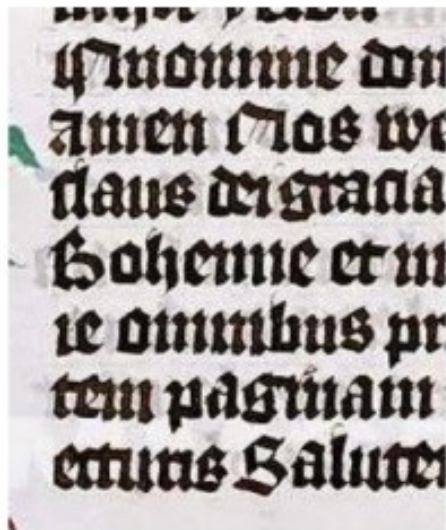 Innomine dom
amen Nos we
claus dei gracia
Bohemie et m
ie omnibus pr
tem paginam
ecturis Salute